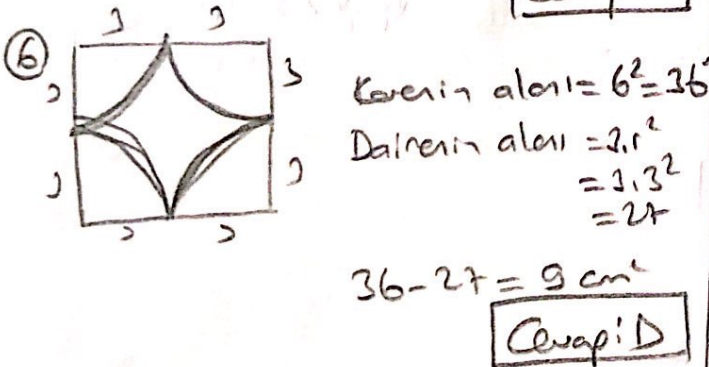 6
3 3
3 3
3 3
3 3
Karenin alanı = 6² = 36
Dairenin alanı = 3.r²
= 3.3²
= 27
36 - 27 = 9 cm²
Cevap: D